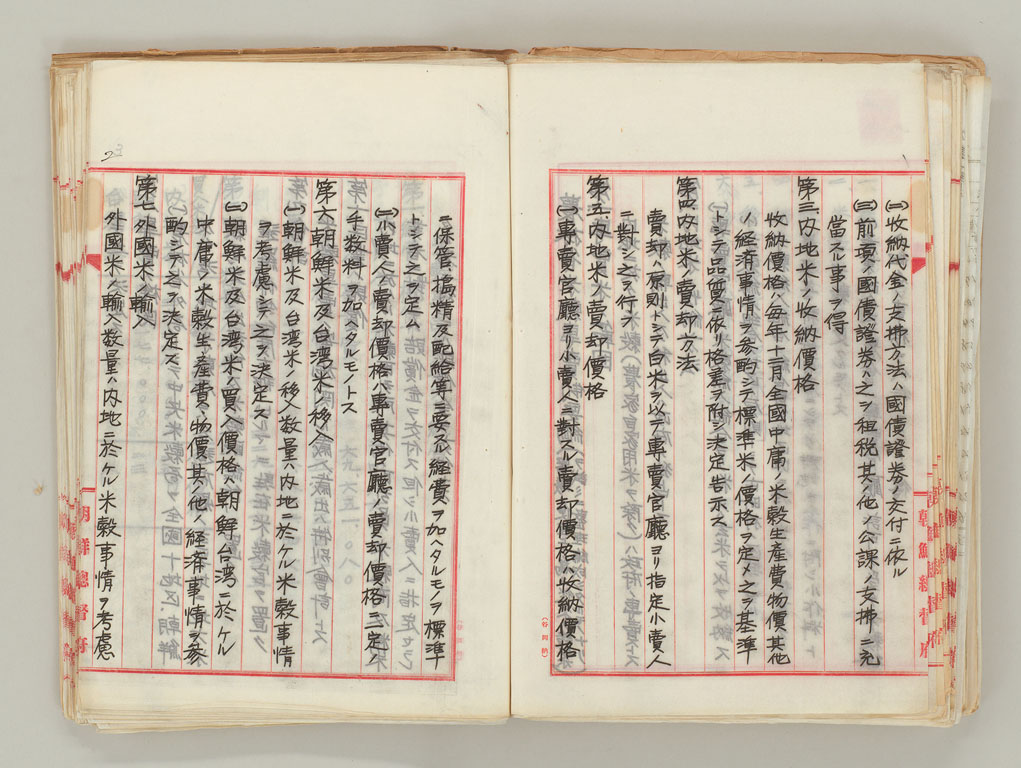 (二)收納代金ノ支拂方法ハ國債證券ノ交付ニ依ル
(三)前項ノ國債證券ハ之ヲ租税其ノ他ノ公課ノ支拂ニ充
當スル事ヲ得
第三、内地米ノ收納價格
收納價格ハ毎年十一月全國中庸ノ米穀生産費、物價其他
ノ經済事情ヲ參酌シテ標準米ノ價格ヲ定メ之ヲ基準
トシテ品質ニ依リ格差ヲ附シ決定告示ス
第四、内地米ノ賣却方法
賣却ノ原則トシテ白米ヲ以テ專賣官廳ヨリ指定小賣人
ニ對シ之ヲ行フ
第五、内地米ノ賣却價格
(一)專賣官廳ヨリ小賣人ニ對スル賣却價格ハ收納價格
ニ保管、搗精及配給等ニ要スル經費ヲ加ヘタルモノヲ標準
トシテ之ヲ定ム
(二)小賣人ノ賣却價格ハ專賣官廳ノ賣却價格ニ一定ノ
手數料ヲ加ヘタルモノトス
第六、朝鮮米及台湾米ノ移入
(一)朝鮮米及台湾米ノ移入數量ハ内地ニ於ケル米穀事情
ヲ考慮シテ之ヲ決定ス
(二)朝鮮米及台湾米ノ買入價格ハ朝鮮台湾ニ於ケル
中庸ノ米穀生産費、物價其ノ他ノ經済事情ヲ參
酌シテ之ヲ決定ス
第七、外國米ノ輸入
外國米ノ輸入數量ハ内地ニ於ケル米穀事情ヲ考慮
朝鮮總督府